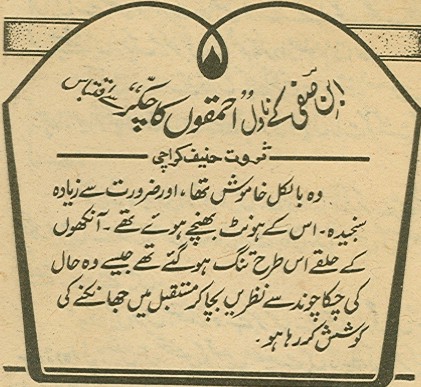 ابنِ صفی کے ناول "احمقوں کا چکر" سے اقتباس
ثروت حنیف کراچی
وہ بالکل خاموش تھا، اور ضرورت سے زیادہ
سنجیدہ۔ اس کے ہونٹ بھنچے ہوئے تھے۔ آنکھوں
کے حلقے اس طرح تنگ ہو گئے تھے جیسے وہ حال
کی چکا چوند سے نظریں بچا کر مستقبل میں جھانکنے کی
کوشش کر رہا ہو۔